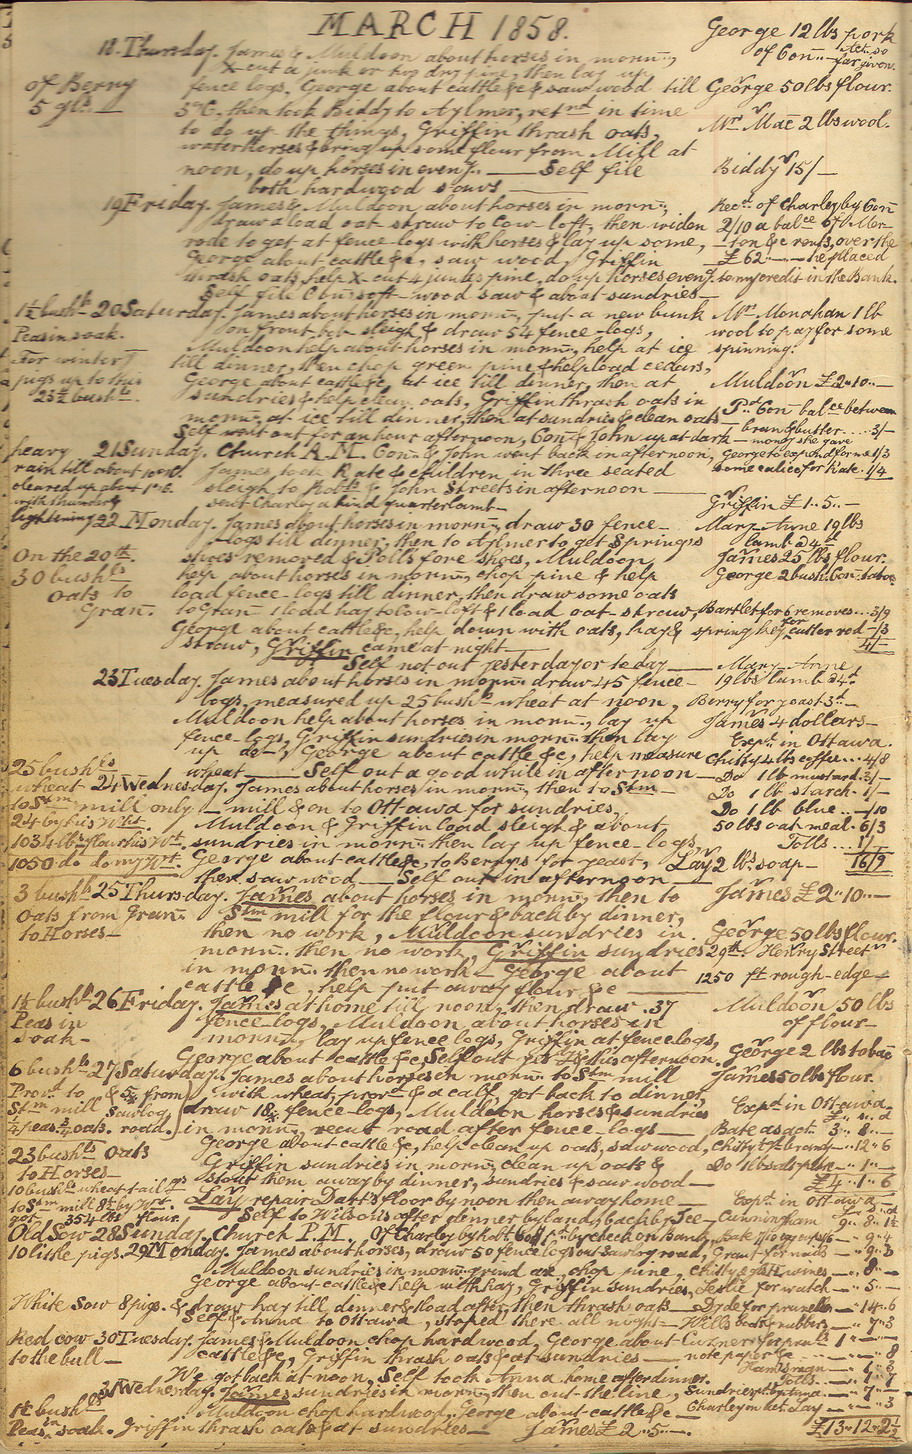 MARCH 1858.
George 12 lbs pork
of Conn - far given.
18. Thursday. James & Muldoon about horses in mornn,
X-cut a junk or two dry pine, then lay up
of Berry
5 gls.
fence logs, George about cattle &c & saw wood till
George 50 lbs flour.
then took Biddy to Aylmer, retnd in time
to do up the things, Griffin thrash oats,
Mrs Mac 2 lbs wool.
water horses & bring up some flour from Mill at
noon, do up horses in eveng. — Self file
Biddy 15/—
both hardwood saws —
19 Friday. James & Muldoon about horses in mornn,
Rect. of Charley by Conn
draw a load oat straw to Cow loft, then widen
2/10 a balce of Mer-
rode to get at fence-logs with horses & lay up some,
ton &c rents, over the
George about cattle &c, saw wood, Griffin
£62 — he placed
thrash oats, help X-cut 4 junks pine, do up horses eveng.
to my credit in the Bank.
Self file Conn soft-wood saw & about sundries —
1½ bushls
Peas in soak.
20 Saturday. James about horses in mornn, put a new bunk
Mrs Monahan 1 lb
on front bob-sleigh, & draw 54 fence-logs,
wool to pay for some
Muldoon help about horses in mornn, help at ice
spinning.
For winter'g
pigs up to this
25½ bushls.
till dinner, then chop green pine & help load cedars,
George about cattle &c, at ice till dinner, then at
Muldoon £2"10"—
sundries & help clean oats, Griffin thrash oats in
mornn, at ice till dinner, then at sundries & clean oats
Pd Conn balce between
Self went out for an hour afternoon, Conn & John up at dark
bran & butter .... 3/—
money she gave
heavy
rain till about
cleared up about
with thunder &
lightening
21 Sunday. Church A.M. Conn & John went back in afternoon,
George to expend for us 1/3
James took Kate & children in three seated
some calico for Kate. 1/4
sleigh to Robts & John Streets in afternoon —
sent Charley a hind quarter lamb —
Griffin £1"5"—
22 Monday. James about horses in mornn, draw 30 fence-
Mary-Anne 19 lbs
logs till dinner, then to Aylmer to get Spring's
lamb
On the 20th
30 bushls
oats to
Gran.
shoes removed & Poll's fore shoes, Muldoon
James 25 lbs flour.
help about horses in mornn, chop pine & help
George 2 bush. Conn
load fence-logs till dinner, then draw some oats
to Gran. 1 load hay to Cow-loft & 1 load oat straw,
Bartlet for 6 removes ... 3/9
George about cattle &c, help down with oats, hay &
spring key for cutter rod —/3
straw, Griffin came at night —
4/—
Self not out yesterday or today —
Mary-Anne
23 Tuesday. James about horses in mornn. draw 45 fence-
19 lbs lamb
logs, measured up 25 bushls wheat at noon,
Berry for yeast
Muldoon help about horses in mornn, lay up
James 4 dollars —
fence-logs, Griffin sundries in mornn. then lay
Expd. in Ottawa.
up do —, George about cattle &c, help measure
Chitty 4 lbs coffee ... 4/8
wheat — Self out a good while in afternoon —
Do 1 lb mustard. 3/—
25 bushls
wheat
to Stm mill only
24 by his Wht.
24 Wednesday. James about horses in mornn, then to Stm —
Do 1 lb starch. 1/—
mill & on to Ottawa for sundries,
Do 1 lb blue ... —/10
Muldoon & Griffin load sleigh & about
50 lbs oat meal. 6/3
1034 lbs flour his Wt.
1050 do do my Wt.
sundries in mornn then lay up fence-logs,
Tolls ... 1/
George about cattle &c, to Berrys for yeast,
Lay 2 lbs. soap —
16/9
then saw wood — Self out in afternoon —
3 bushls
oats from Gran.
to Horses —
25 Thursday. James about horses in mornn, then to
James £2"10"—
Stm mill for the flour & back by dinner,
then no work, Muldoon sundries in
George 50 lbs flour.
mornn. then no work, Griffin sundries
29th. Henry Street
in mornn. then no work — George about
1250 ft rough-edge —
cattle &c, help put away flour &c —
1½ bushls
Peas in
soak —
26 Friday. James at home till noon, then draw 37
Muldoon 50 lbs
fence-logs, Muldoon about horses in
of flour —
mornn, lay up fence logs, Griffin at fence logs,
George about cattle &c, Self out for afternoon.
George 2 lbs tobac
6 bushls
27 Saturday. James about horses in mornn to Stm mill
James 50 lbs flour.
Prov. to
Stm mill
with wheat, prov. & a calf, got back to dinner,
Expd in Ottawa
draw 18 fence-logs, Muldoon horses & sundries
in mornn, recut road after fence-logs —
Bate as act. 3"8"—
23 bushls oats
to Horses —
George about cattle &c, help clean up oats, saw wood,
Chitty "12"6
Griffin sundries in mornn, clean up oats &
Do
stow them away by dinner, sundries & saw wood —
£4"1"6
10 bushls wheat tail
to Stm mill
got 354 lbs flour.
Lay repair Datt's floor by noon then away home —
Expd in Ottawa
Self to Wilson's after dinner by land, back by Ice —
Cunningham 9"8"1½
Old Sow
10 little pigs.
28 Sunday. Church P.M. Of Charley by Robt. by check on Bank,
Bate "9"4
29 Monday. James about horses, draw 50 fence logs out Sawlog road,
Grant for 9"3
Muldoon sundries in mornn grind axe, chop pine
Chitty wines "8"—
George about cattle & help with hay, Griffin sundries,
Leslie for watch — "5"—
White Sow 8 pigs.
& draw hay till dinner & load after, then thrash oats —
Dyde for prunella — "14"6
Self & Anna to Ottawa, stoped there all night —
Wills boots & rubbers — "7"3
Red cow
to the bull —
30 Tuesday. James & Muldoon chop hard wood, George about
cattle &c, Griffin thrash oats & at sundries —
note paper &c
We got back at noon, Self took Anna home after dinner.
Tolls
31 Wednesday. James sundries in mornn, then out the line,
Sundries
1½ bushls
Peas in soak.
Muldoon chop hardwood, George about cattle &c —
Charley
Griffin thrash oats & at sundries — James £2"5"—
£13"12"2½